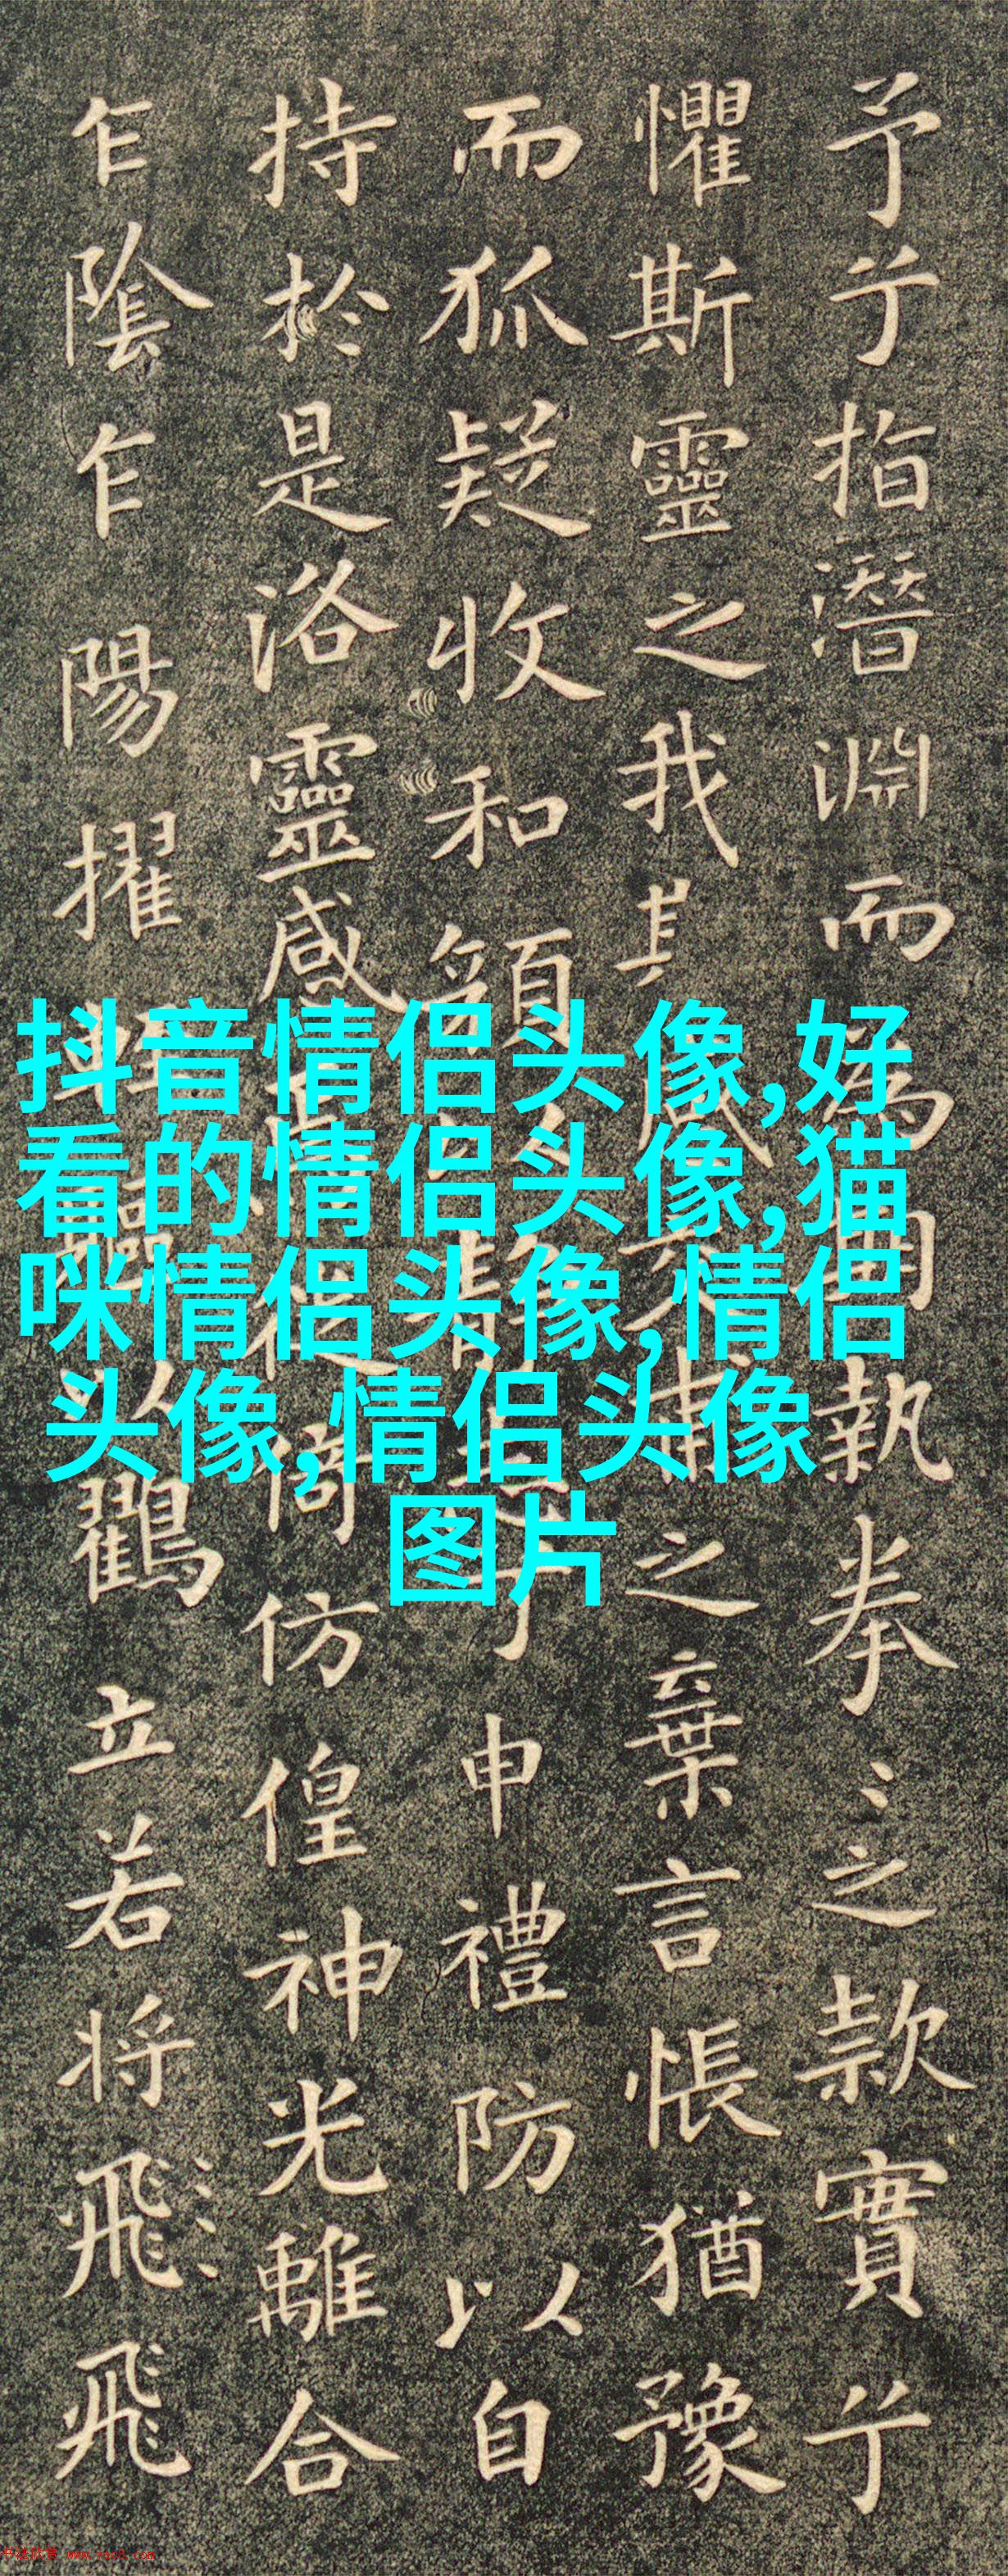 抖音情侣头像,好
看的情侣头像,猫
咪情侣头像,情侣
头像,情侣头像
图片
予兮指潛淵而為執拳〻之款實兮
懼斯靈之我其之棄言悵猶豫
而狐疑收和顏申禮防以自
持於是洛靈感仿偟神光離合
乍陰乍陽擢以鸛立若將飛飛